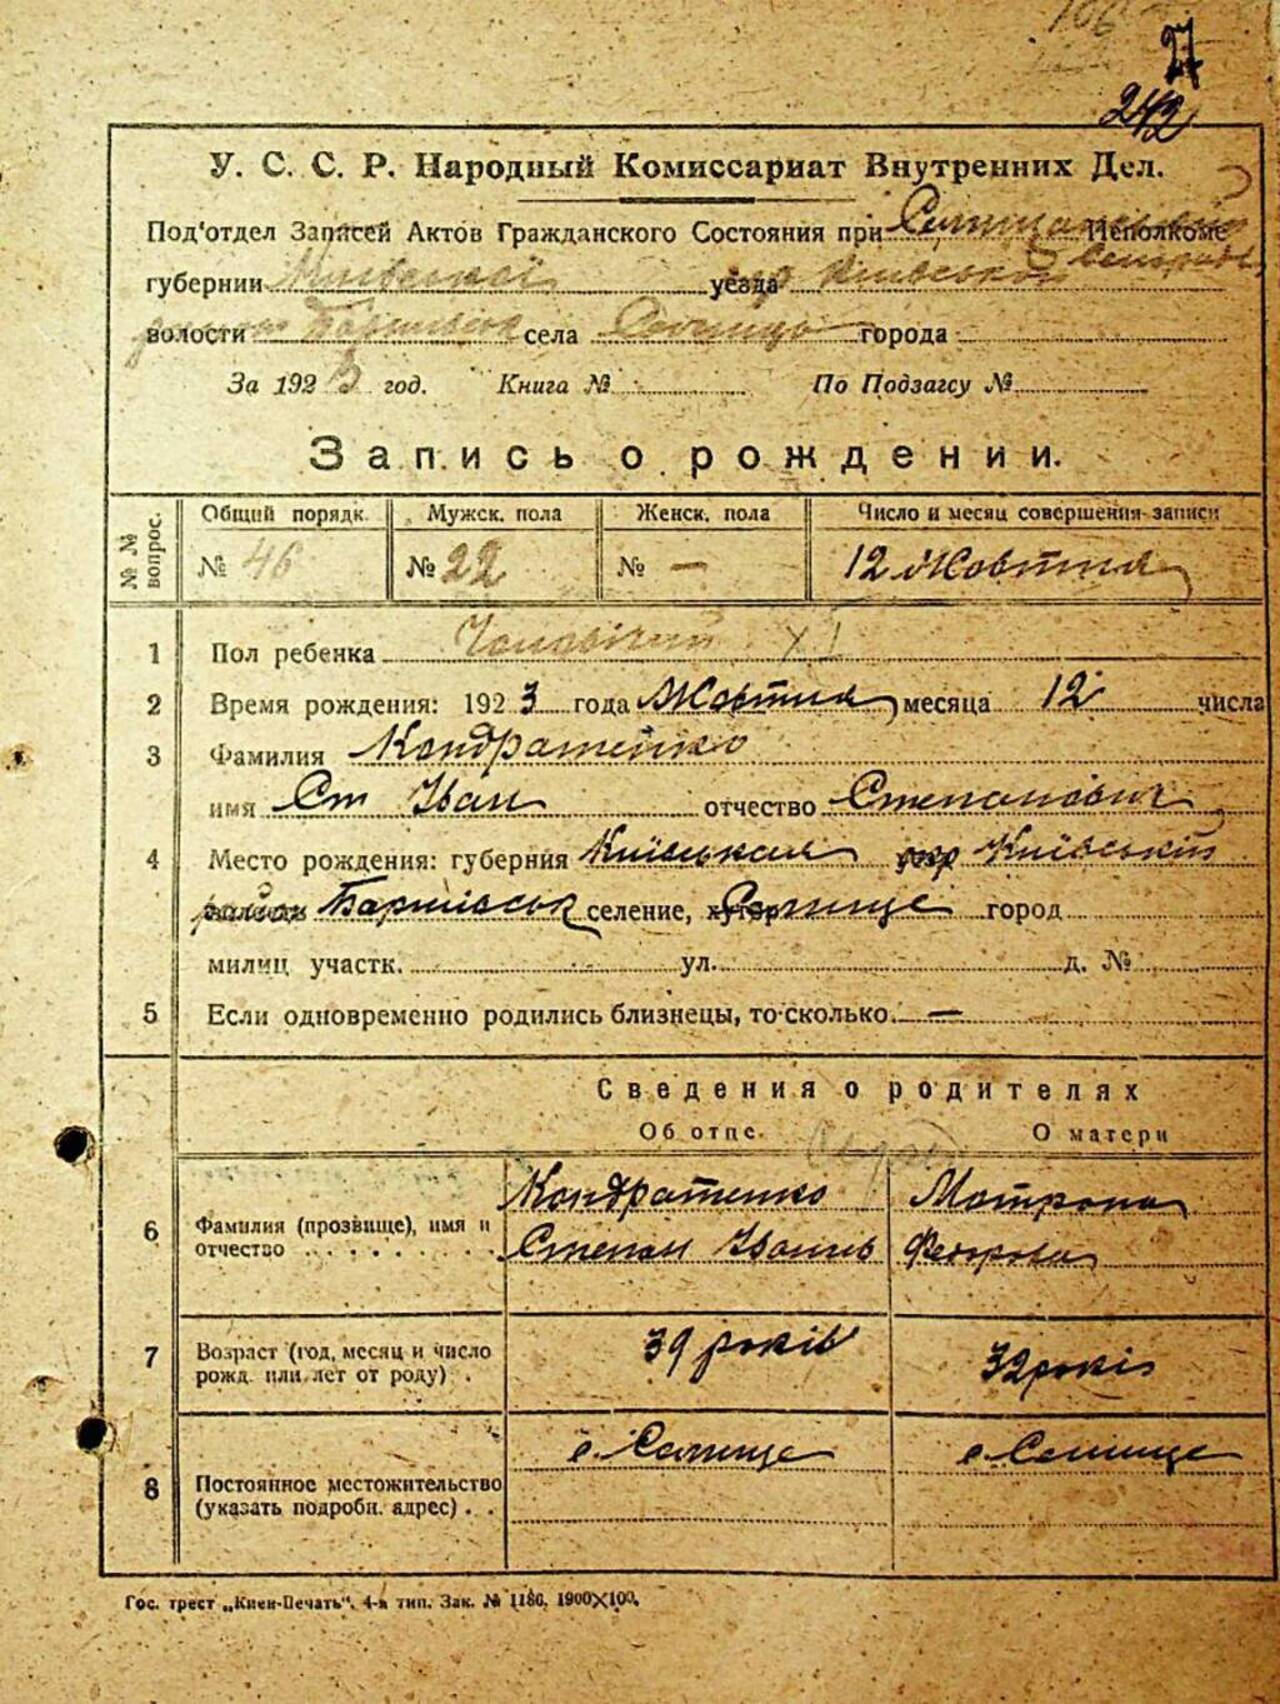 27
242
У. С. С. Р. Народный Комиссариат Внутренних Дел.
Под'отдел Записей Актов Гражданского Состояния при Исполкоме
губернии Київської уезда Київської
волости Баришівськ села Селище города
За 1923 год. Книга № По Подзагсу №
Запись о рождении.
№№ вопрос. Общий порядк. Мужск. пола Женск. пола Число и месяц совершения записи
№ 46 № 22 № — 12 Жовтня
1 Пол ребенка Чоловічий XI
2 Время рождения: 1923 года Жовтня месяца 12 числа
3 Фамилия Кондратенко
имя Ст Іван отчество Степанович
4 Место рождения: губерния Київська окр Київській
район Баришівськ селение, хутор Селище город
милиц участк. ул. д. №
5 Если одновременно родились близнецы, то сколько. —
Сведения о родителях
Об отце. О матери
6 Фамилия (прозвище), имя и отчество Кондратенко Степан Іванів Мотрона Федорова
7 Возраст (год, месяц и число рожд. или лет от роду) . 39 років 32 років
8 Постоянное местожительство (указать подробн. адрес) . . с. Селище с. Селище
Гос. трест „Киев-Печать“. 4-я тип. Зак. № 1186. 1900×100.